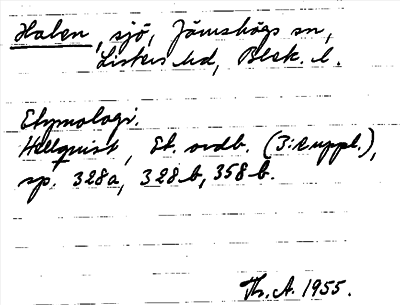 Halen, sjö, Jämshögs sn,
Listers hd, Blek. l.
Etymologi.
Hellquist, Et. ordb. (3:e uppl.),
sp. 328a, 328b, 358b.
Th. A. 1955.